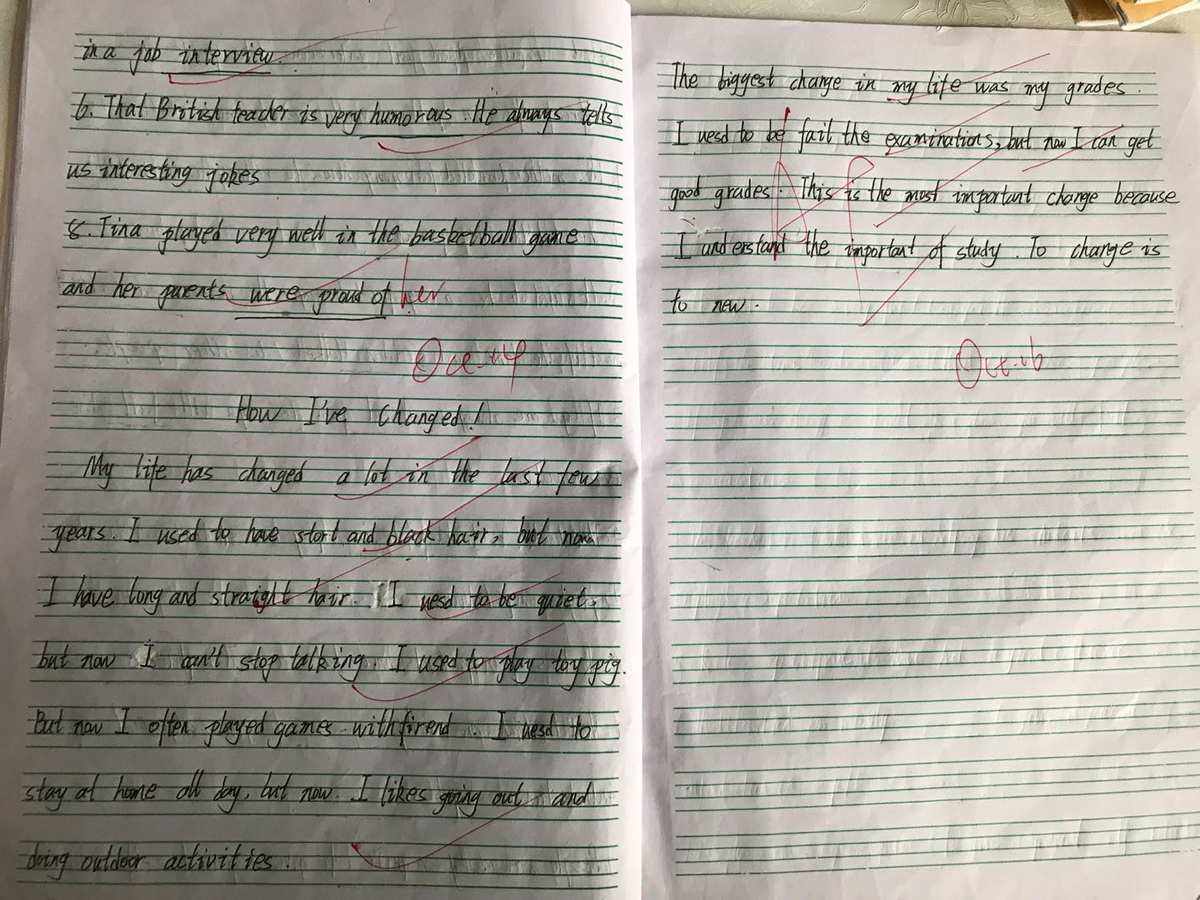 in a job interview.
6. That British teacher is very humorous. He always tells
us interesting jokes
8. Tina played very well in the basketball game
and her parents were proud of her
How I've changed!
My life has changed a lot in the last few
years. I used to have stort and black hair, but now
I have long and straight hair. I uesd to be quiet,
but now I can't stop talking. I used to play toy pig.
But now I often played games with firend. I uesd to
stay at home all day, but now I likes going out and
doing outdoor activities.
The biggest change in my life was my grades.
I uesd to be fail the examinations, but now I can get
good grades. This is the most important change because
I understand the important of study. To change is
to new.